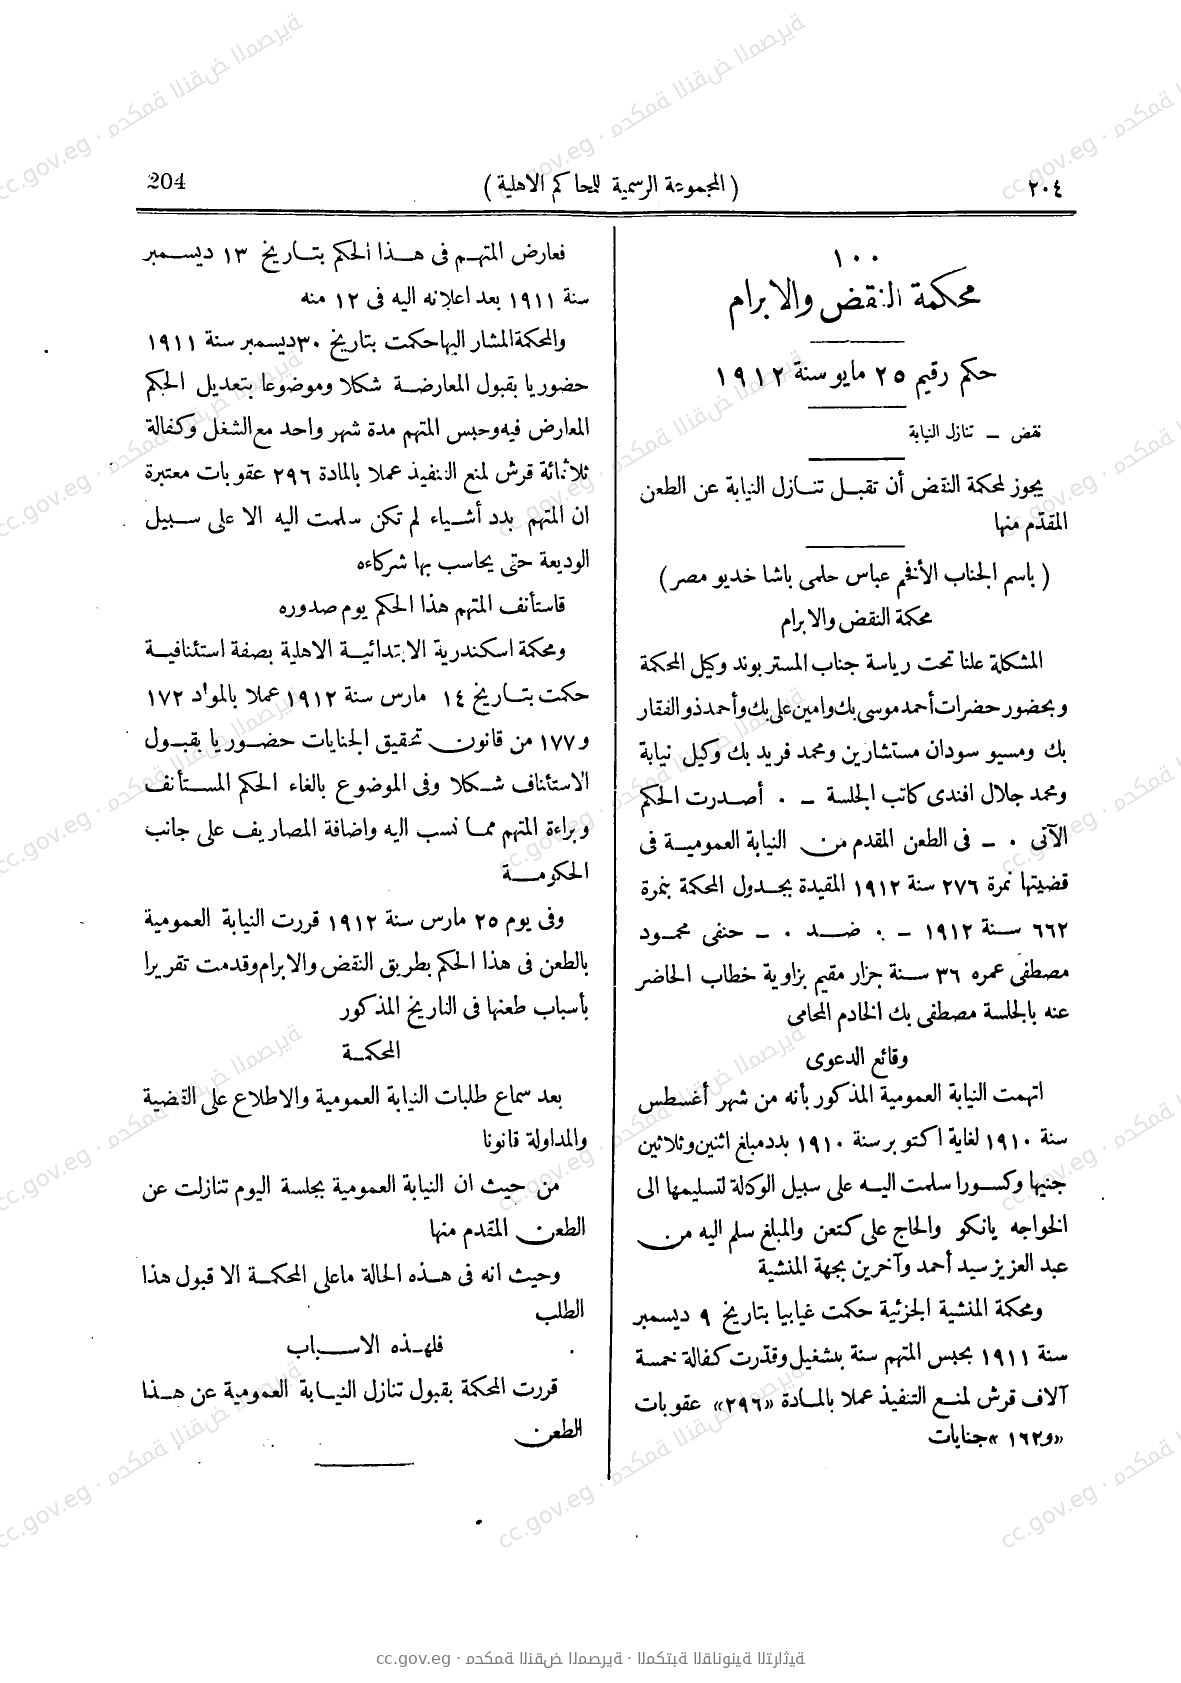 ٢٠٤
( المجموعة الرسمية للمحاكم الاهلية )
204
١٠٠
محكمة النقض والابرام
حكم رقيم ٢٥ مايو سنة ١٩١٢
نقض – تنازل النيابة
يجوز لمحكمة النقض أن تقبل تنازل النيابة عن الطعن
المقدّم منها
( باسم الجناب الأفخم عباس حلمى باشا خديو مصر )
محكمة النقض والابرام
المشكلة علنا تحت رياسة جناب المستر بوند وكيل المحكمة
وبحضور حضرات أحمد موسى بك وامين على بك وأحمد ذو الفقار
بك ومسيو سودان مستشارين ومحمد فريد بك وكيل نيابة
ومحمد جلال افندى كاتب الجلسة – ٠ أصدرت الحكم
الآتى ٠ – فى الطعن المقدم من النيابة العمومية فى
قضيتها نمرة ٢٧٦ سنة ١٩١٢ المقيدة بجدول المحكمة بنمرة
٦٦٢ سنة ١٩١٢ – ٠ ضد ٠ – حنفى محمود
مصطفى عمره ٣٦ سنة جزار مقيم بزاوية خطاب الحاضر
عنه بالجلسة مصطفى بك الخادم المحامى
وقائع الدعوى
اتهمت النيابة العمومية المذكور بأنه من شهر أغسطس
سنة ١٩١٠ لغاية اكتوبر سنة ١٩١٠ بدد مبلغ اثنين وثلاثين
جنيها وكسورا سلمت اليه على سبيل الوكالة لتسليمها الى
الخواجه يانكو والحاج على كتعن والمبلغ سلم اليه من
عبد العزيز سيد أحمد وآخرين بجهة المنشية
ومحكمة المنشية الجزئية حكمت غيابيا بتاريخ ٩ ديسمبر
سنة ١٩١١ بحبس المتهم سنة بشغيل وقدّرت كفالة خمسة
آلاف قرش لمنع التنفيذ عملا بالمادة «٢٩٦» عقوبات
«و١٦٢ » جنايات
فعارض المتهم فى هذا الحكم بتاريخ ١٣ ديسمبر
سنة ١٩١١ بعد اعلانه اليه فى ١٢ منه
والمحكمة المشار اليها حكمت بتاريخ ٣٠ ديسمبر سنة ١٩١١
حضوريا بقبول المعارضة شكلا وموضوعا بتعديل الحكم
المعارض فيه وحبس المتهم مدة شهر واحد مع الشغل وكفالة
ثلاثمائة قرش لمنع التنفيذ عملا بالمادة ٢٩٦ عقوبات معتبرة
ان المتهم بدد أشياء لم تكن سلمت اليه الا على سبيل
الوديعة حتى يحاسب بها شركاءه
فاستأنف المتهم هذا الحكم يوم صدوره
ومحكمة اسكندرية الابتدائية الاهلية بصفة استئنافية
حكمت بتاريخ ١٤ مارس سنة ١٩١٢ عملا بالمواد ١٧٢
و١٧٧ من قانون تحقيق الجنايات حضوريا بقبول
الاستئناف شكلا وفى الموضوع بالغاء الحكم المستأنف
وبراءة المتهم مما نسب اليه واضافة المصاريف على جانب
الحكومة
وفى يوم ٢٥ مارس سنة ١٩١٢ قررت النيابة العمومية
بالطعن فى هذا الحكم بطريق النقض والابرام وقدمت تقريرا
بأسباب طعنها فى التاريخ المذكور
المحكمة
بعد سماع طلبات النيابة العمومية والاطلاع على القضية
والمداولة قانونا
من حيث ان النيابة العمومية بجلسة اليوم تنازلت عن
الطعن المقدم منها
وحيث انه فى هذه الحالة ماعلى المحكمة الا قبول هذا
الطلب
فلهذه الاسباب
قررت المحكمة بقبول تنازل النيابة العمومية عن هذا
الطعن
cc.gov.eg · محكمة النقض المصرية · المكتبة القانونية التراثية